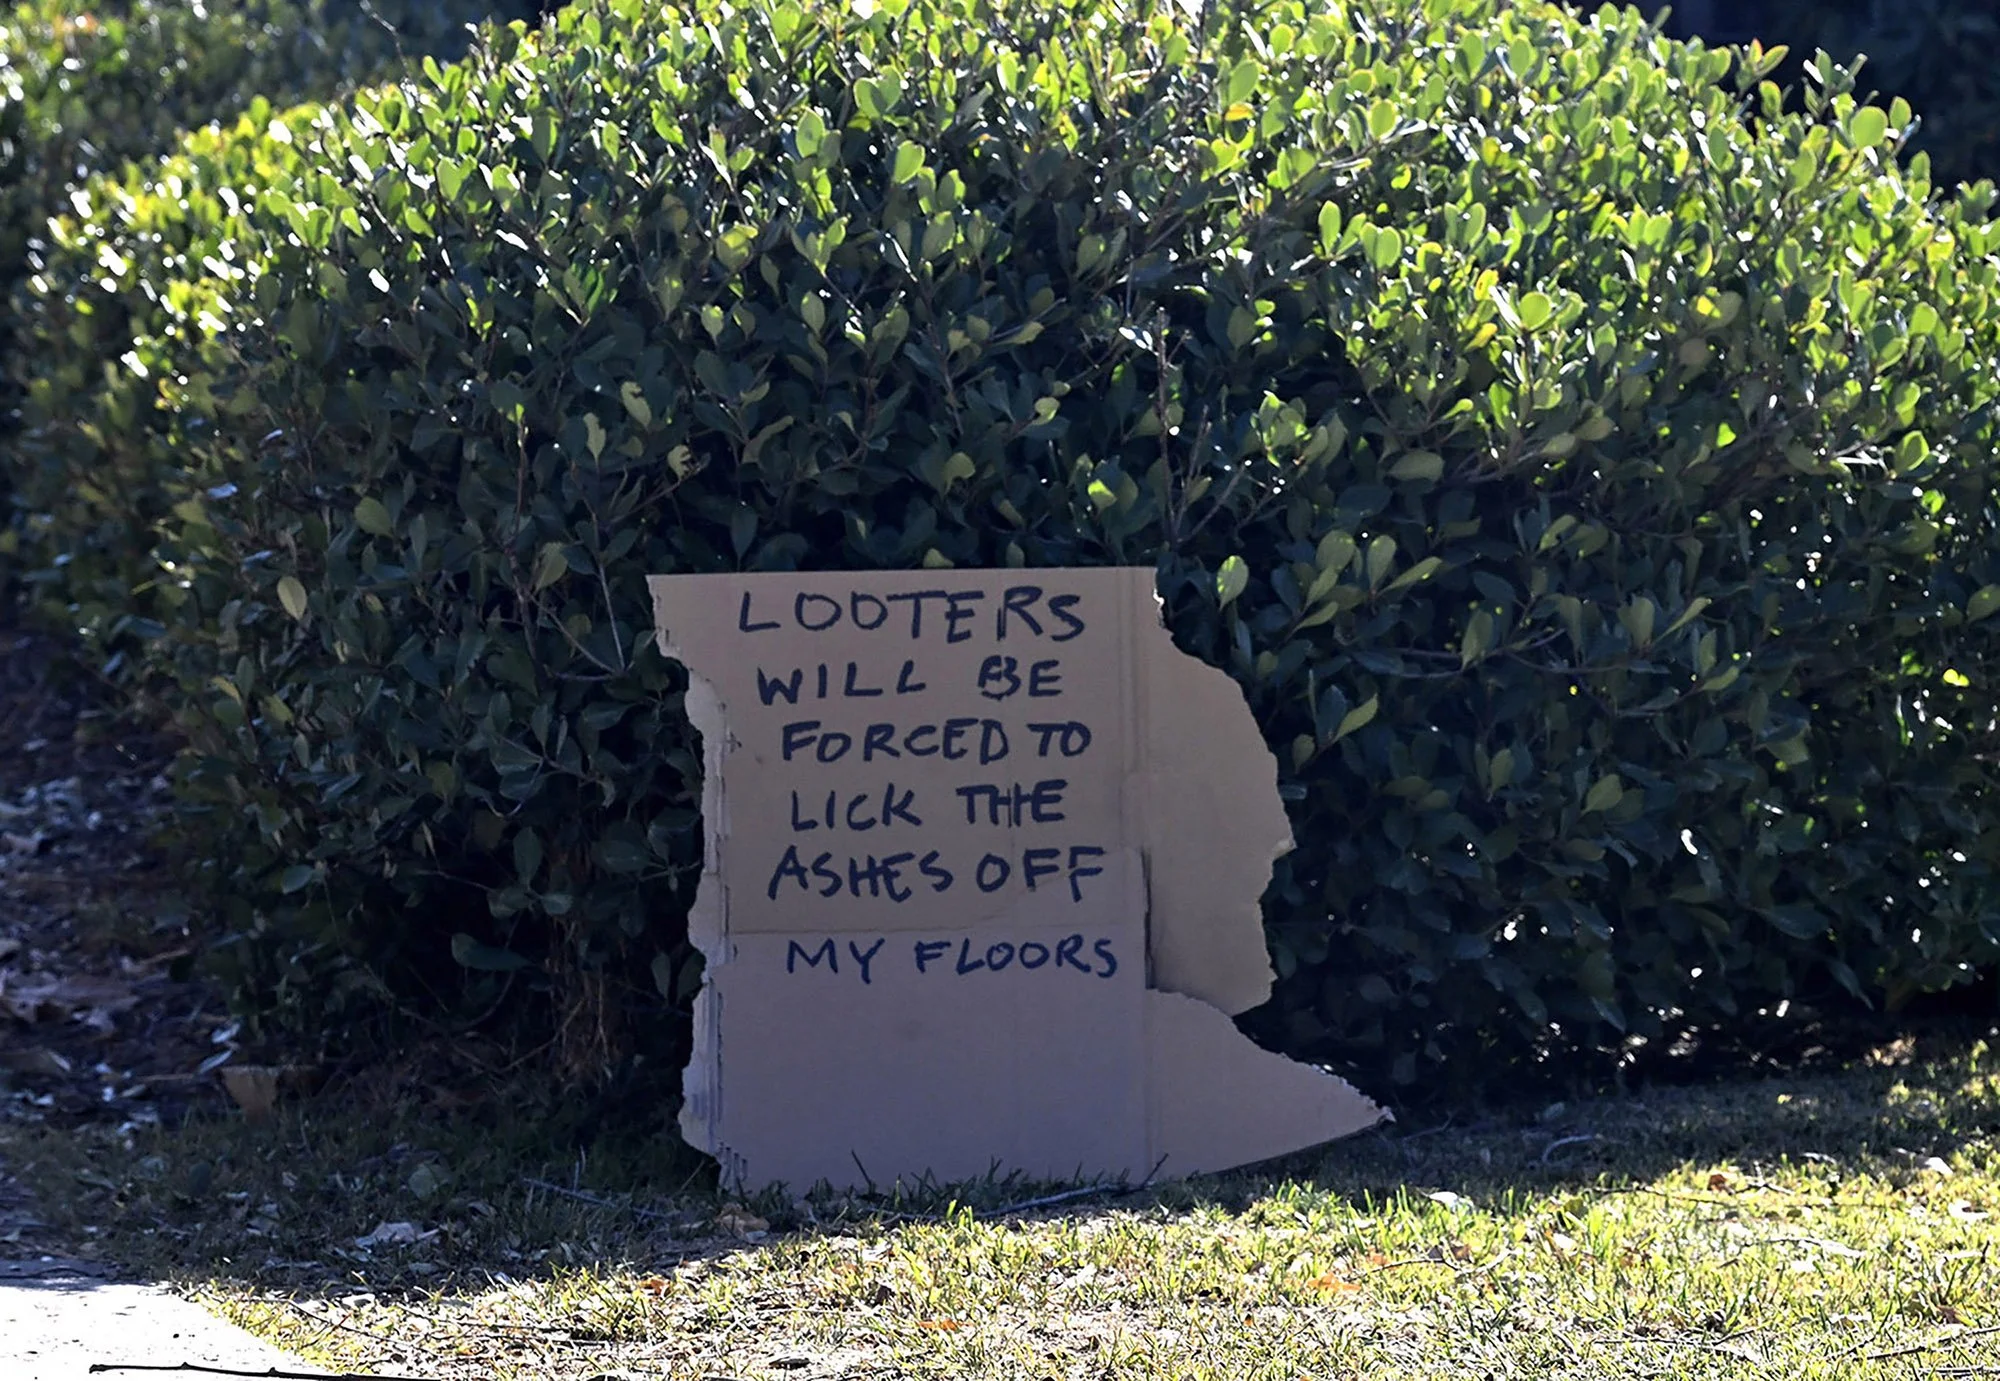 LOOTERS
WILL BE
FORCED TO
LICK THE
ASHES OFF
MY FLOORS